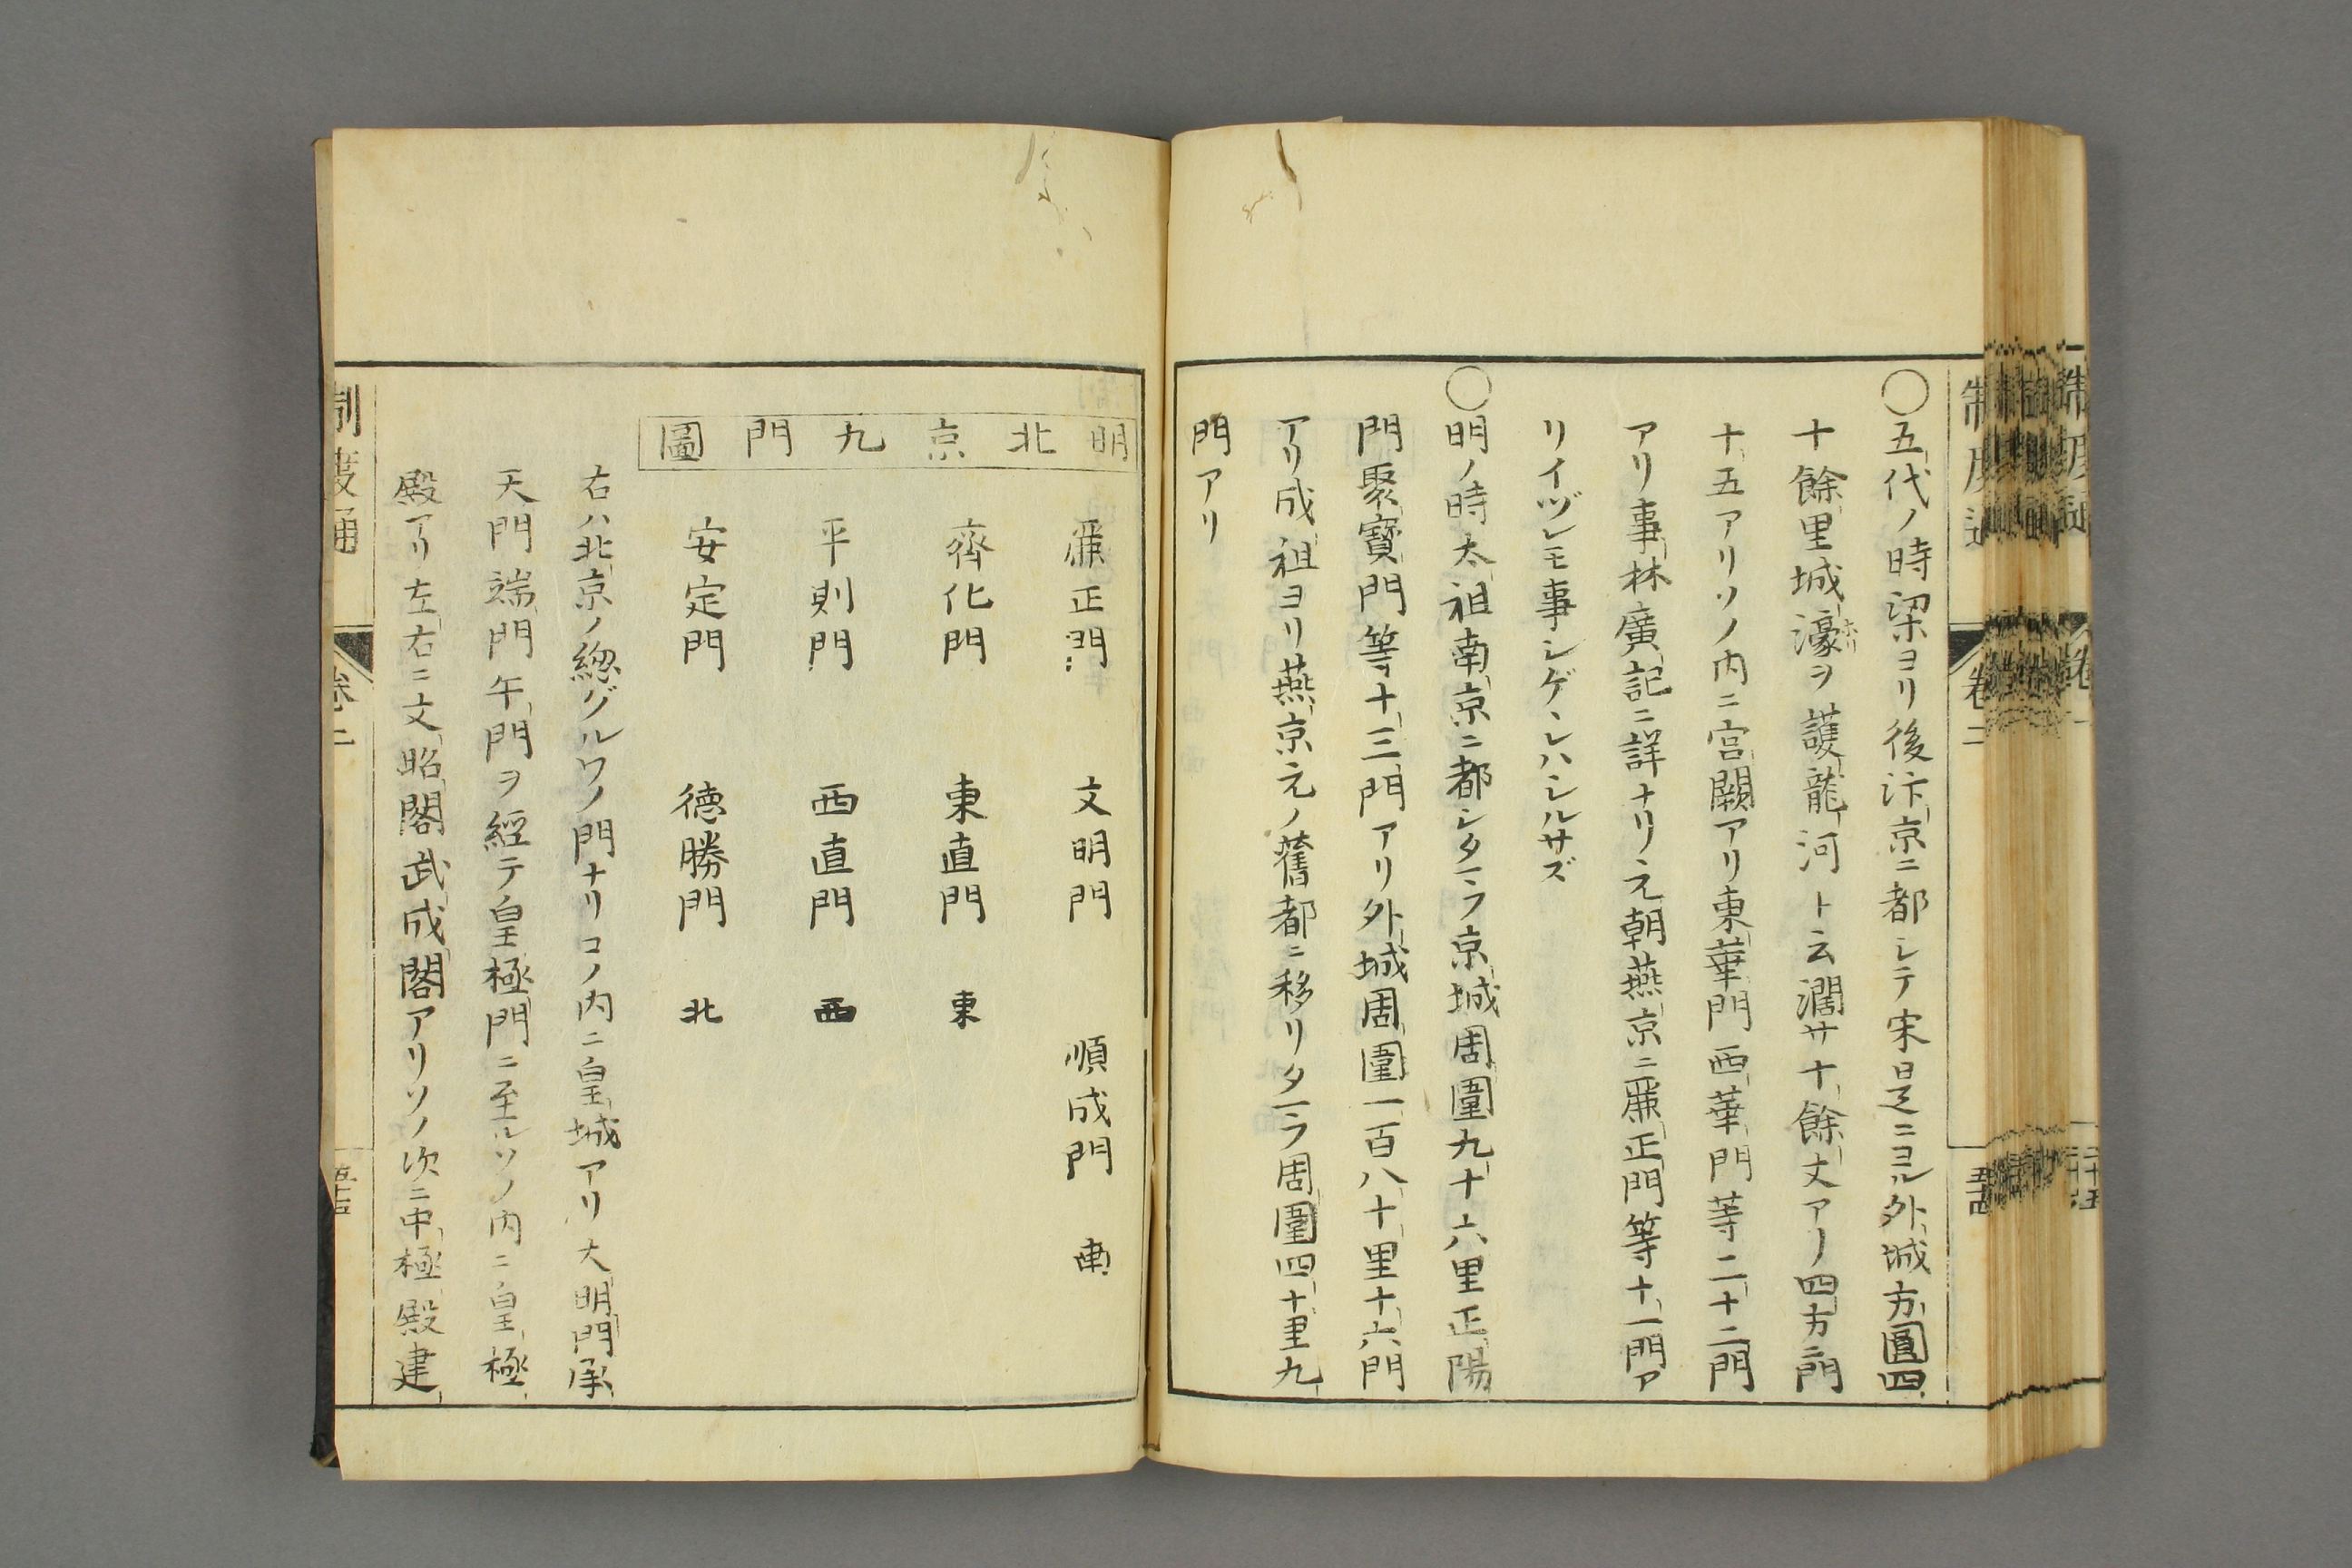 〇五代ノ時梁ヨリ後汴京ニ都シテ宋是ニヨル外城方圓四
十餘里城濠ヲ護龍河ト云濶サ十餘丈アリ四方ニ門
ホリ
十五アリソノ内ニ宮闕アリ東華門西華門等二十二門
アリ事林廣記ニ詳ナリ元朝燕京ニ麗正門等十一門ア
リイヅレモ事シゲヽレハシルサズ
〇明ノ時太祖南京ニ都シタマフ京城周圍九十六里正陽
門聚寶門等十三門アリ外城周圍一百八十里十六門
アリ成祖ヨリ燕京元ノ舊都ニ移リタマフ周圍四十里九
門アリ
明北京九門圖
正門 文明門 順成門 南
齊化門 東直門 東
平則門 西直門 西
安定門 德勝門 北
右ハ北京ノ總グルワノ門ナリコノ内ニ皇城アリ大明門承
天門端門午門ヲ經テ皇極門ニ至ルソノ内ニ皇極
殿アリ左右ニ文昭閣武成閣アリソノ次ニ中極殿建
制度通
卷二